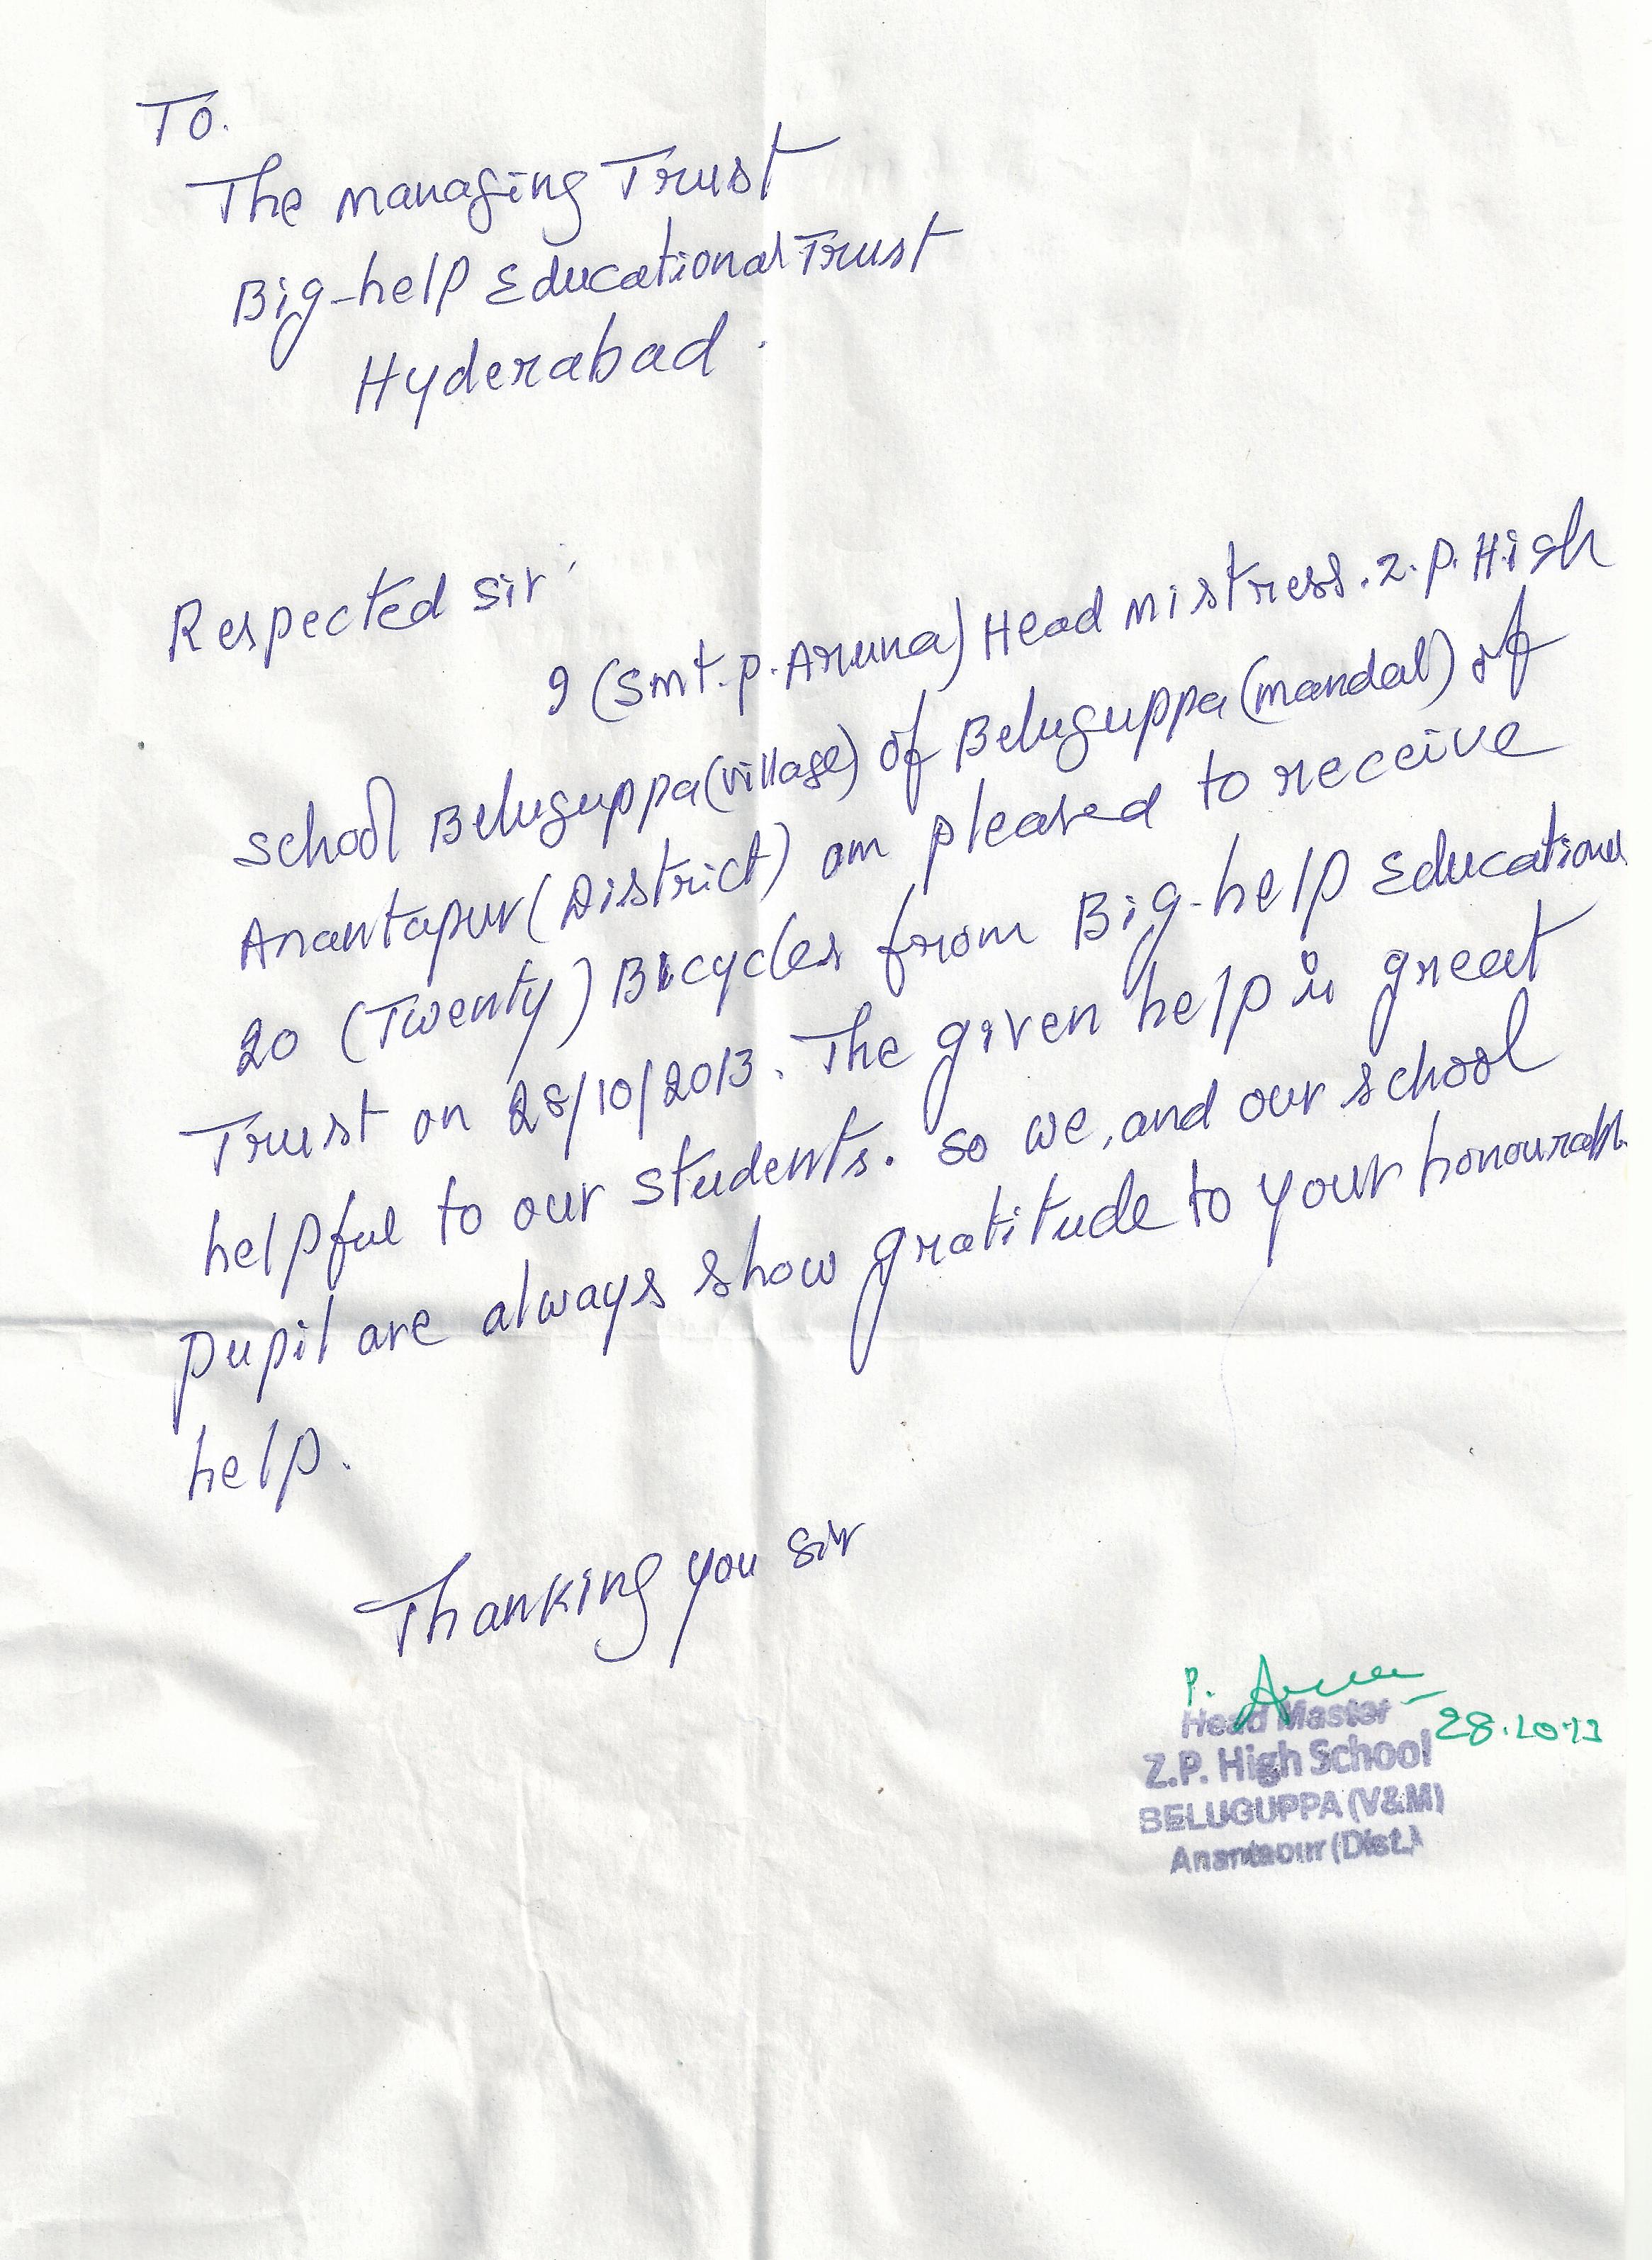 To.
The managing Trust
Big-help Educational Trust
Hyderabad.
Respected sir,
I (Smt. P. Aruna) Head mistress. Z. P. High
school Beluguppa (village) of Beluguppa (mandal) of
Anantapur (District) am pleased to receive
20 (Twenty) Bicycles from Big-help Educational
Trust on 28/10/2013. The given help is great
helpful to our students. so we, and our school
pupil are always show gratitude to your honourable
help.
Thanking you sir
P. Aruna
Head Master 28.10.13
Z.P. High School
BELUGUPPA (V&M)
Anantapur (Dist.)